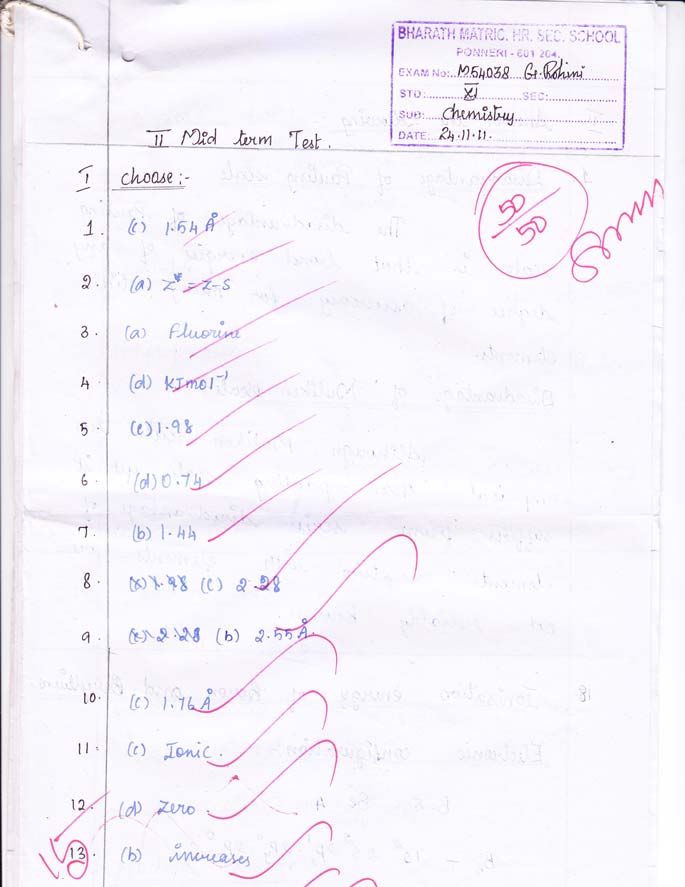 BHARATH MATRIC. HR. SEC. SCHOOL
PONNERI - 601 204.
EXAM No: M54038 G. Rohini
STD: XI SEC:
SUB: Chemistry.
DATE: 24.11.11.
II Mid term Test.
I choose:-
50/50
1. (c) 1.54 Å
2. (a) Z* = Z-S
3. (a) Fluorine
4. (d) KJmol⁻¹
5. (c) 1.98
6. (d) 0.74
7. (b) 1.44
8. (c) 2.28
9. (b) 2.55 Å.
10. (c) 1.76 Å
11. (c) Ionic.
12. (d) Zero.
13. (b) increases
15